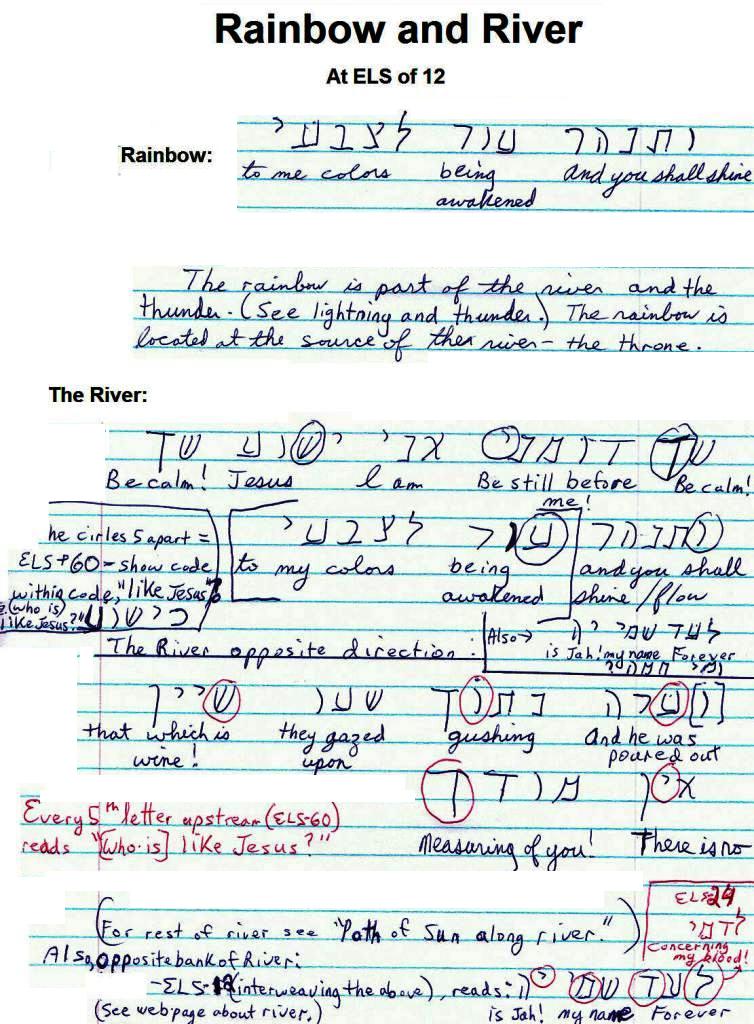 Rainbow and River
At ELS of 12
Rainbow:
ותנהר עור לצבעי
to me colors being and you shall shine
awakened
The rainbow is part of the river and the
thunder. (See lightning and thunder.) The rainbow is
located at the source of the river – the throne.
The River:
Be calm! Jesus I am Be still before Be calm!
me!
he cirles 5 apart =
ELS+60 – show code
within code, "like Jesus"?
(who is)
like Jesus?"
ותנהר עור לצבעי
to my colors being and you shall
awakened shine/flow
The River opposite direction:
Also→ לעד שמי יה
is Jah! my name Forever
that which is they gazed gushing And he was
wine! upon poured out
Measuring of you! There is no
Every 5th letter upstream (ELS-60)
reads "[who is] like Jesus?"
(For rest of river see "Path of Sun along river.")
ELS 24
לדמי
concerning
my blood!
Also, opposite bank of River:
(interweaving the above), reads: לעד שמי יה
(See webpage about river.) is Jah! my name Forever